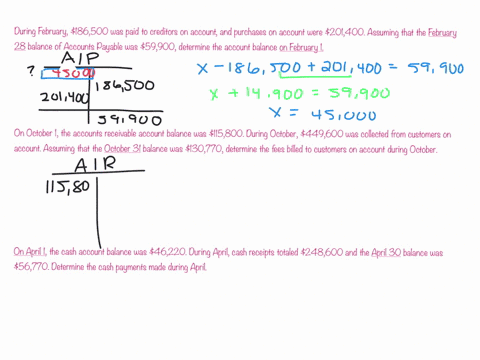 During February, $186,500 was paid to creditors on account, and purchases on account were $201,400. Assuming that the February
28 balance of Accounts Payable was $59,900, determine the account balance on February 1.
A|P
? 45000
186,500
201,400
59,900
x - 186,500 + 201,400 = 59,900
x + 14,900 = 59,900
x = 45,000
On October 1, the accounts receivable account balance was $115,800. During October, $449,600 was collected from customers on
account. Assuming that the October 31 balance was $130,770, determine the fees billed to customers on account during October.
A|R
115,80
On April 1, the cash account balance was $46,220. During April, cash receipts totaled $248,600 and the April 30 balance was
$56,770. Determine the cash payments made during April.